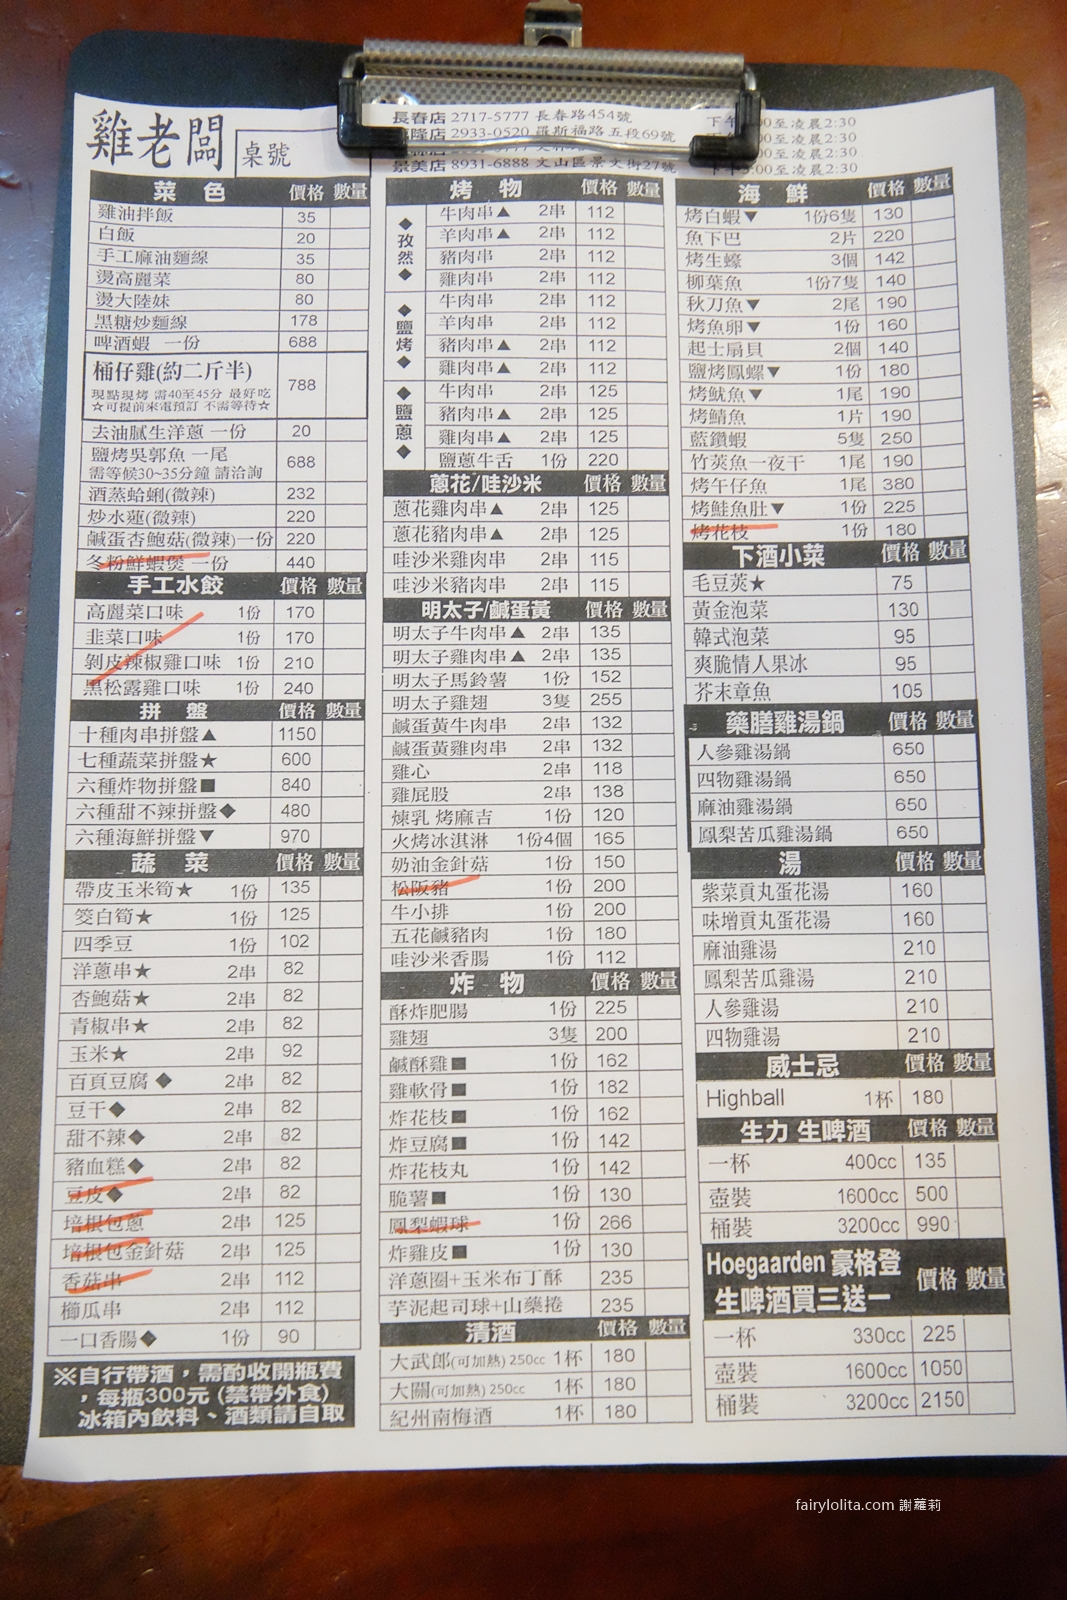 雞老闆
桌號
長春店 2717-5777 長春路454號
隆店 2933-0520 羅斯福路五段69號
景美店 8931-6888 文山區景文街27號
下午 :00至凌晨2:30
00至凌晨2:30
00至凌晨2:30
下午5:00至凌晨2:30
菜 色 價格 數量
雞油拌飯 35
白飯 20
手工麻油麵線 35
燙高麗菜 80
燙大陸妹 80
黑糖炒麵線 178
啤酒蝦 一份 688
桶仔雞(約二斤半) 788
現點現烤 需40至45分 最好吃
☆可提前來電預訂 不需等待☆
去油膩生洋蔥 一份 20
鹽烤吳郭魚 一尾 688
需等候30~35分鐘 請洽詢
酒蒸蛤蜊(微辣) 232
炒水蓮(微辣) 220
鹹蛋杏鮑菇(微辣)一份 220
冬粉鮮蝦煲 一份 440
手工水餃 價格 數量
高麗菜口味 1份 170
韭菜口味 1份 170
剝皮辣椒雞口味 1份 210
黑松露雞口味 1份 240
拼 盤 價格 數量
十種肉串拼盤▲ 1150
七種蔬菜拼盤★ 600
六種炸物拼盤■ 840
六種甜不辣拼盤◆ 480
六種海鮮拼盤▼ 970
蔬 菜 價格 數量
帶皮玉米筍★ 1份 135
筊白筍★ 1份 125
四季豆 1份 102
洋蔥串★ 2串 82
杏鮑菇★ 2串 82
青椒串★ 2串 82
玉米★ 2串 92
百頁豆腐◆ 2串 82
豆干◆ 2串 82
甜不辣◆ 2串 82
豬血糕◆ 2串 82
豆皮◆ 2串 82
培根包蔥 2串 125
培根包金針菇 2串 125
香菇串 2串 112
櫛瓜串 2串 112
一口香腸◆ 1份 90
※自行帶酒，需酌收開瓶費
，每瓶300元 (禁帶外食)
冰箱內飲料、酒類請自取
烤 物 價格 數量
◆孜然◆
牛肉串▲ 2串 112
羊肉串▲ 2串 112
豬肉串 2串 112
雞肉串 2串 112
◆鹽烤◆
牛肉串 2串 112
羊肉串 2串 112
豬肉串▲ 2串 112
雞肉串▲ 2串 112
◆鹽蔥◆
牛肉串 2串 125
豬肉串▲ 2串 125
雞肉串▲ 2串 125
鹽蔥牛舌 1份 220
蔥花/哇沙米 價格 數量
蔥花雞肉串▲ 125
蔥花豬肉串▲ 125
哇沙米雞肉串 115
哇沙米豬肉串 115
明太子/鹹蛋黃 價格 數量
明太子牛肉串▲ 2串 135
明太子雞肉串▲ 2串 135
明太子馬鈴薯 1份 152
明太子雞翅 3隻 255
鹹蛋黃牛肉串 2串 132
鹹蛋黃雞肉串 2串 132
雞心 2串 118
雞屁股 2串 138
煉乳 烤麻吉 1份 120
火烤冰淇淋 1份4個 165
奶油金針菇 1份 150
松阪豬 1份 200
牛小排 1份 200
五花鹹豬肉 1份 180
哇沙米香腸 1份 112
炸 物 價格 數量
酥炸肥腸 1份 225
雞翅 3隻 200
鹹酥雞■ 1份 162
雞軟骨■ 1份 182
炸花枝■ 1份 162
炸豆腐■ 1份 142
炸花枝丸 1份 142
脆薯■ 1份 130
鳳梨蝦球 1份 266
炸雞皮■ 1份 130
洋蔥圈+玉米布丁酥 235
芋泥起司球+山藥捲 235
清酒 價格 數量
大武郎(可加熱) 250cc 1杯 180
大關(可加熱) 250cc 1杯 180
紀州南梅酒 1杯 180
海 鮮 價格 數量
烤白蝦▼ 1份6隻 130
魚下巴 2片 220
烤生蠔 3個 142
柳葉魚 1份7隻 140
秋刀魚▼ 2尾 190
烤魚卵▼ 1份 160
起士扇貝 2個 140
鹽烤鳳螺▼ 1份 180
烤魷魚▼ 1尾 190
烤鯖魚 1片 190
藍鑽蝦 5隻 250
竹莢魚一夜干 1尾 190
烤午仔魚 1尾 380
烤鮭魚肚▼ 1份 225
烤花枝 1份 180
下酒小菜 價格 數量
毛豆莢★ 75
黃金泡菜 130
韓式泡菜 95
爽脆情人果冰 95
芥末章魚 105
藥膳雞湯鍋 價格 數量
人參雞湯鍋 650
四物雞湯鍋 650
麻油雞湯鍋 650
鳳梨苦瓜雞湯鍋 650
湯 價格 數量
紫菜貢丸蛋花湯 160
味增貢丸蛋花湯 160
麻油雞湯 210
鳳梨苦瓜雞湯 210
人參雞湯 210
四物雞湯 210
威士忌 價格 數量
Highball 1杯 180
生力 生啤酒 價格 數量
一杯 400cc 135
壺裝 1600cc 500
桶裝 3200cc 990
Hoegaarden 豪格登
生啤酒買三送一 價格 數量
一杯 330cc 225
壺裝 1600cc 1050
桶裝 3200cc 2150
fairylolita.com 謝蘿莉